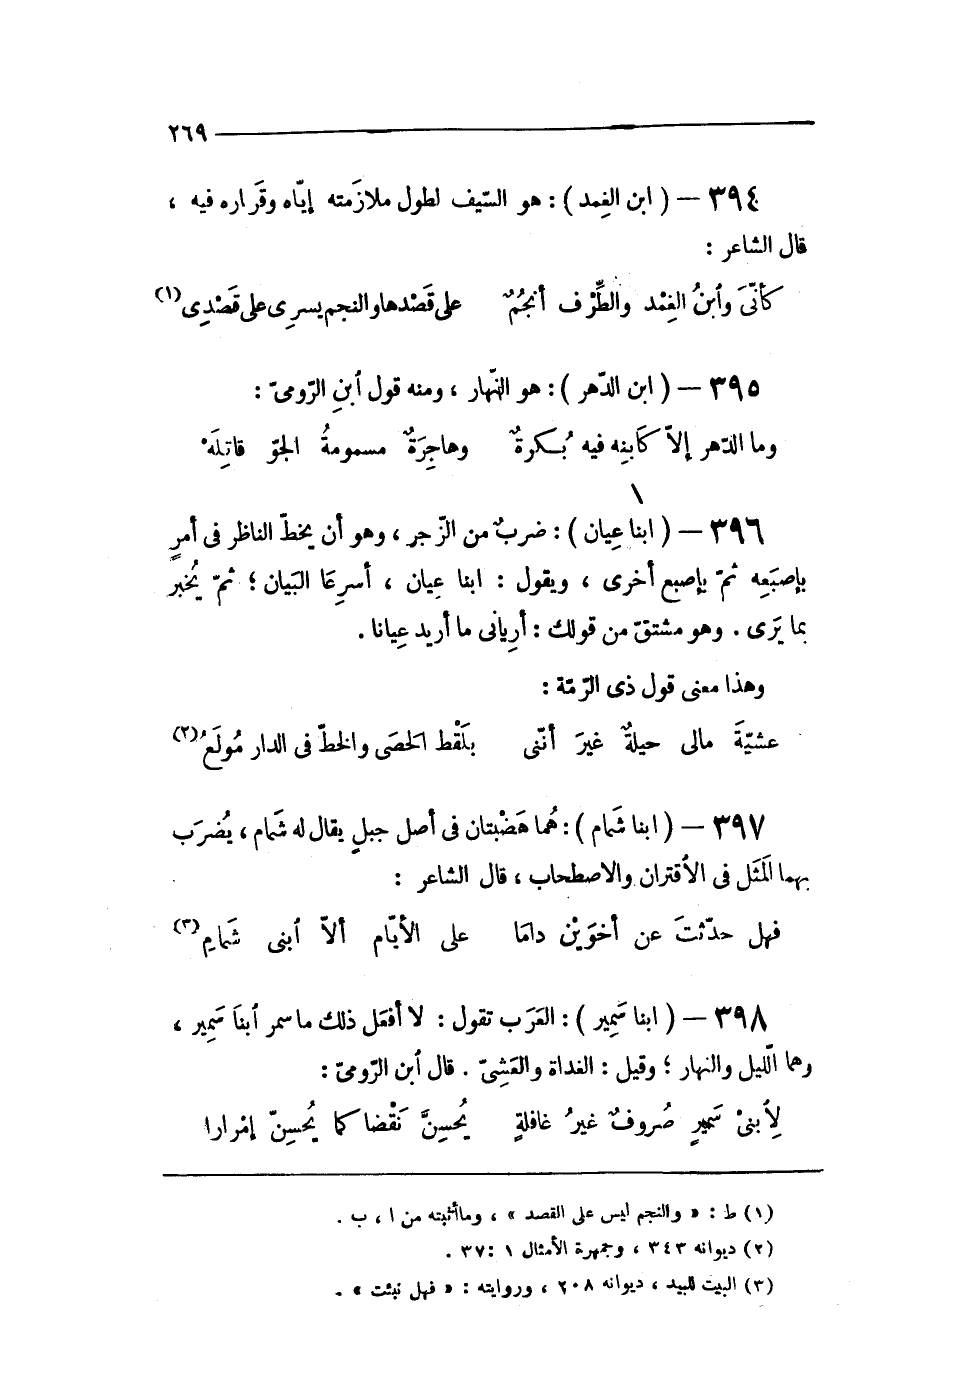 ٢٦٩
٣٩٤ — ( ابن الغِمد ) : هو السّيف لطول ملازَمته إيّاه وقَراره فيه ،
قال الشاعر :
كأنّىَ وٱبنُ الغِمْد والطِّرْف أنجُمٌ على قَصْدها والنجم يسرِى على قَصْدِى (١)
٣٩٥ — ( ابن الدّهر ) : هو النّهار ، ومنه قول ٱبنِ الرّومىّ :
وما الدّهر إلاّ كَابنِه فيه بُكرةٌ وهاجِرَةٌ مسمومةُ الجوّ قاتِلَهْ
٣٩٦ — ( ابنا عِيان ) : ضربٌ من الزّجر ، وهو أن يخطّ الناظر فى أمرٍ
بإصبَعِه ثمّ بإصبع أخرى ، ويقول : ابنا عِيان ، أسرِعَا البَيان ؛ ثمّ يُخبر
بما يَرَى . وهو مشتقّ من قولك : أرِيانى ما أريد عِيانا .
وهذا معنى قول ذى الرّمّة :
عشيّةَ مالى حيلةٌ غيرَ أنّنى بلَقْط الحصَى والخطّ فى الدار مُولَعُ (٢)
٣٩٧ — ( ابنا شَمام ) : هُما هَضْبتان فى أصل جبلٍ يقال له شَمام ، يُضرَب
بهما المَثَل فى الاُقتران والاصطحاب ، قال الشاعر :
فهل حدّثتَ عن أخوَيْن دامَا على الأيّام ألاّ ٱبنى شَمامِ (٣)
٣٩٨ — ( ابنا سَمِير ) : العَرَب تقول : لا أفعَل ذلك ما سمر ٱبنَا سَمِير ،
وهما الّليل والنهار ؛ وقيل : الغداة والعَشِىّ . قال ٱبن الرّومىّ :
لِأبنىْ سَمِيرٍ صُروفٌ غيرُ غافلةٍ يُحسِنَّ نَقْضا كما يُحسِنّ إمْرارا
(١) ط : « والنجم ليس على القصد » ، وما أثبته من ا ، ب .
(٢) ديوانه ٣٤٣ ، وجمهرة الأمثال ١ : ٣٧ .
(٣) البيت للبيد ، ديوانه ٢٠٨ ، وروايته : « فهل نبئت » .